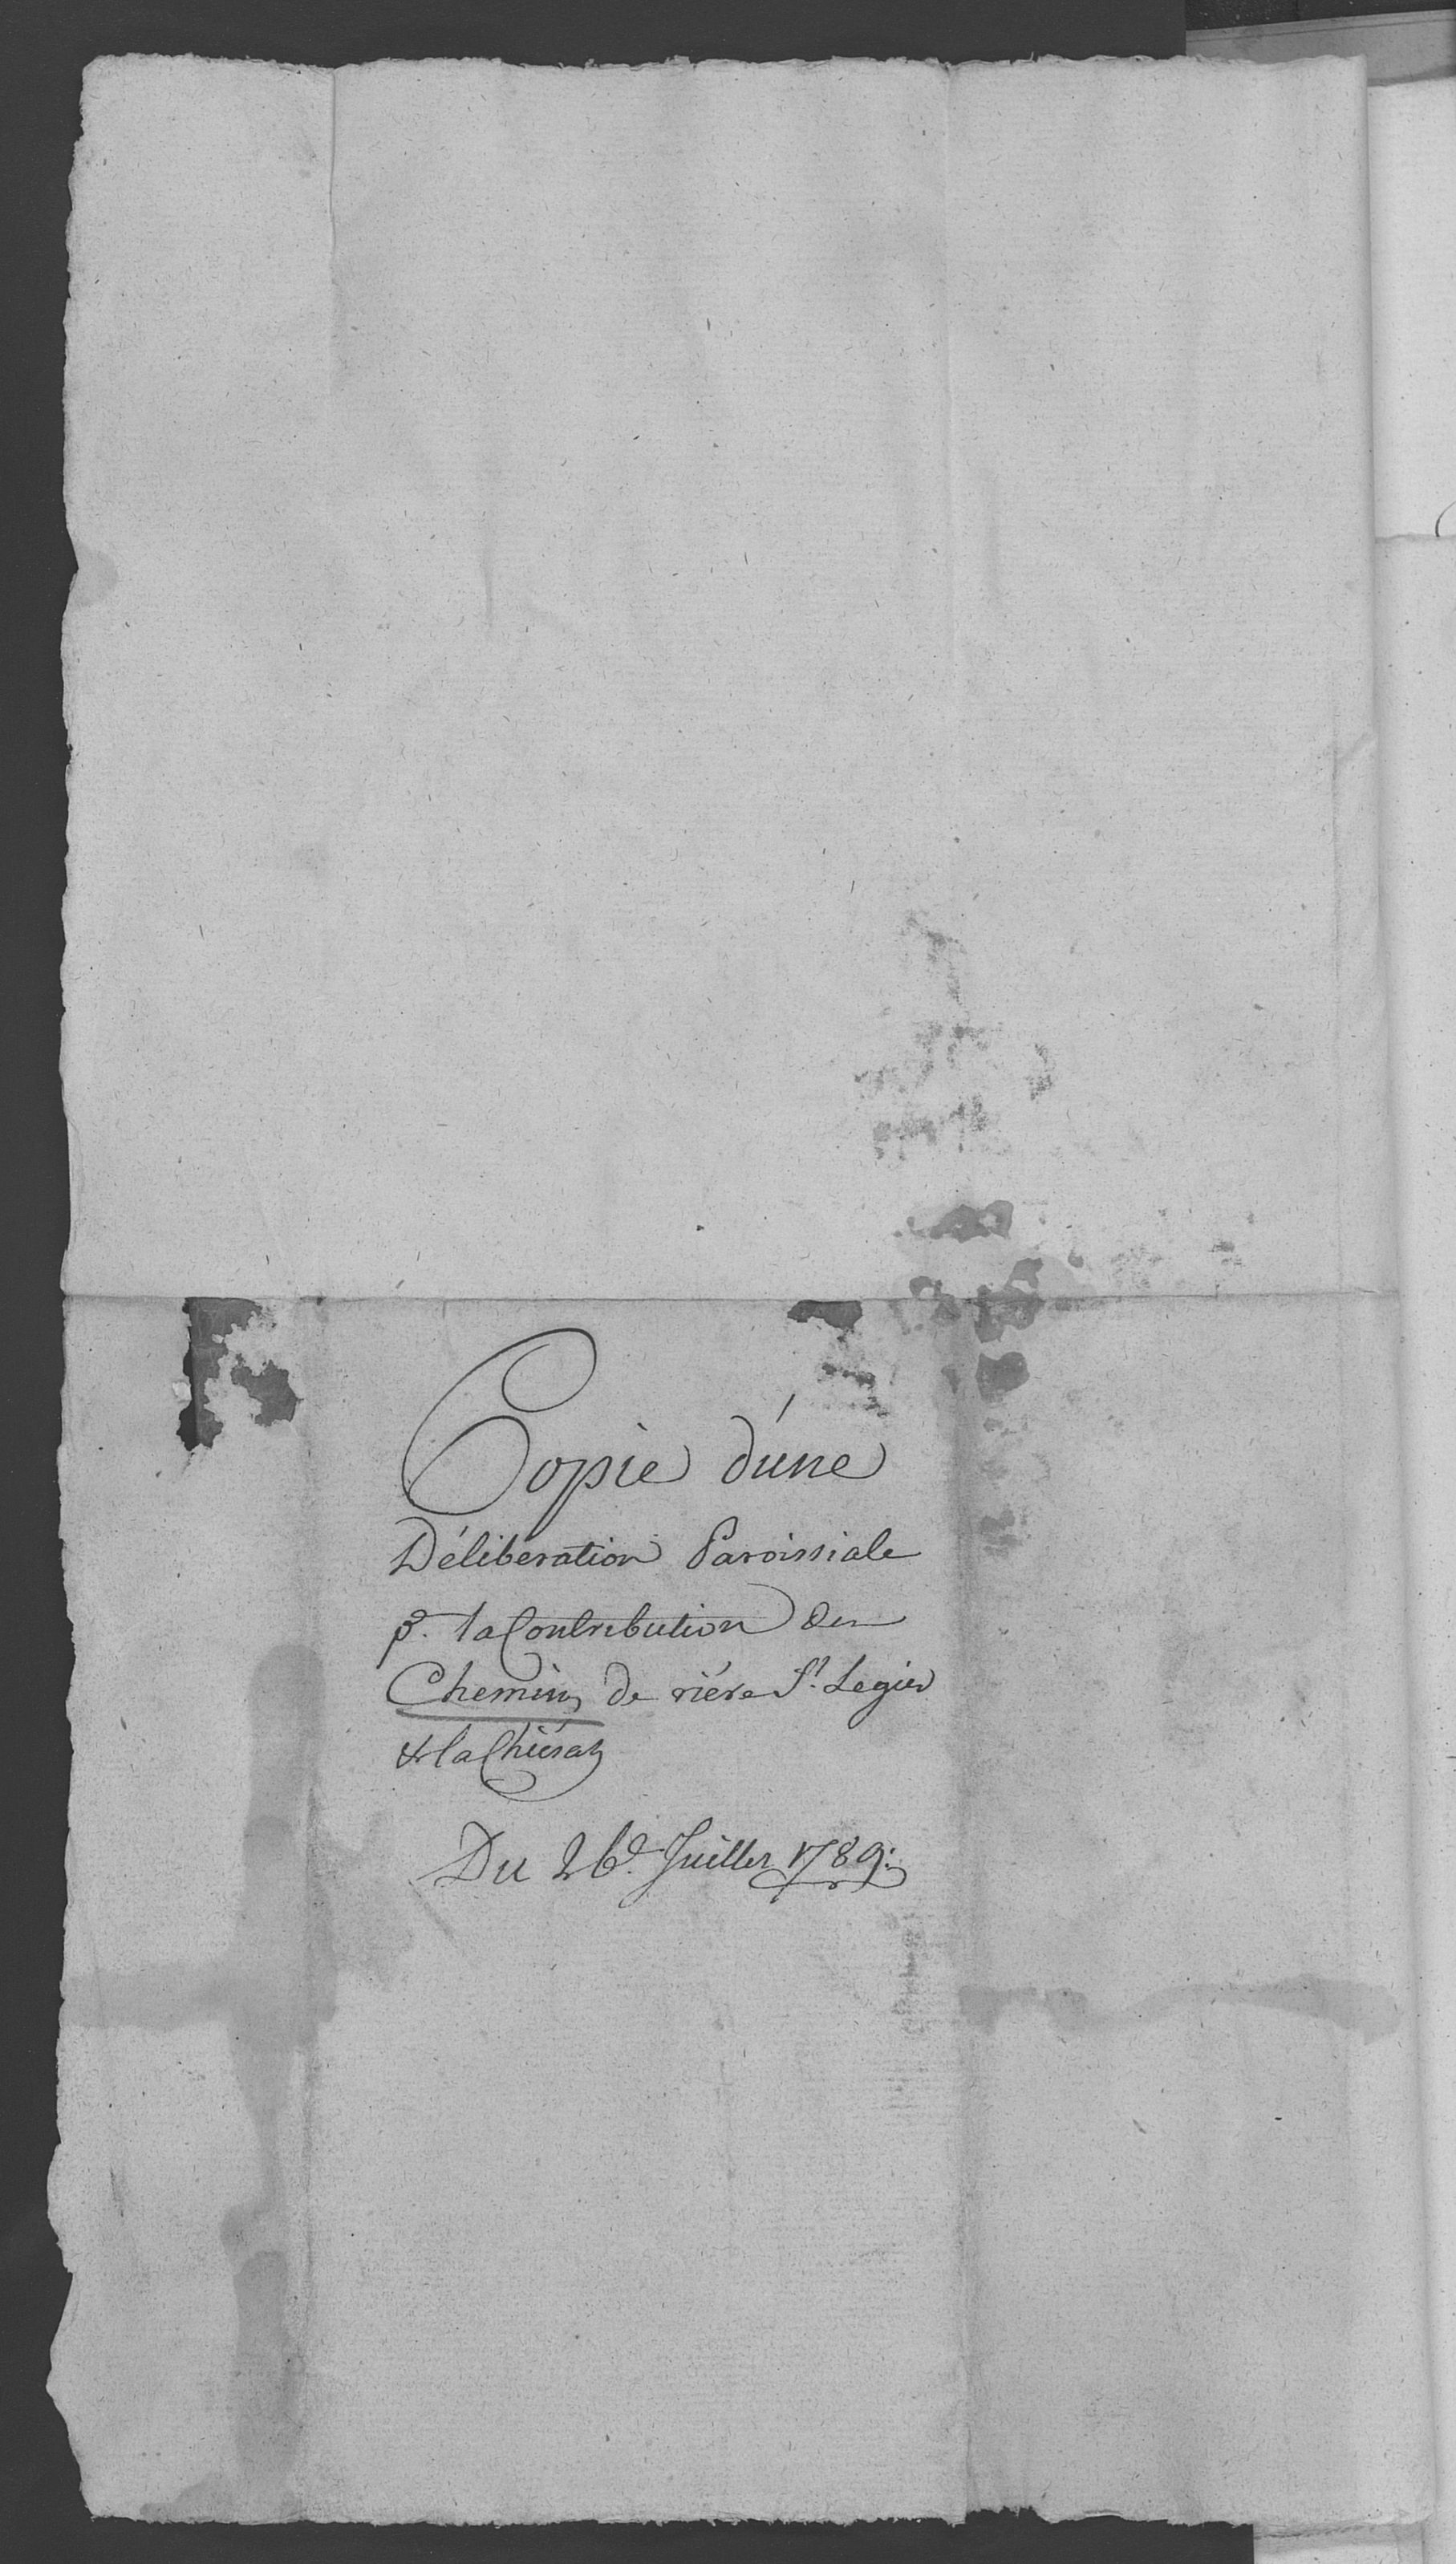 Copie d'une
Déliberation Paroissiale
pr. la Contribution des
Chemins de riére St. Legier
& la Chiésaz
Du 26e. Juillet 1789: